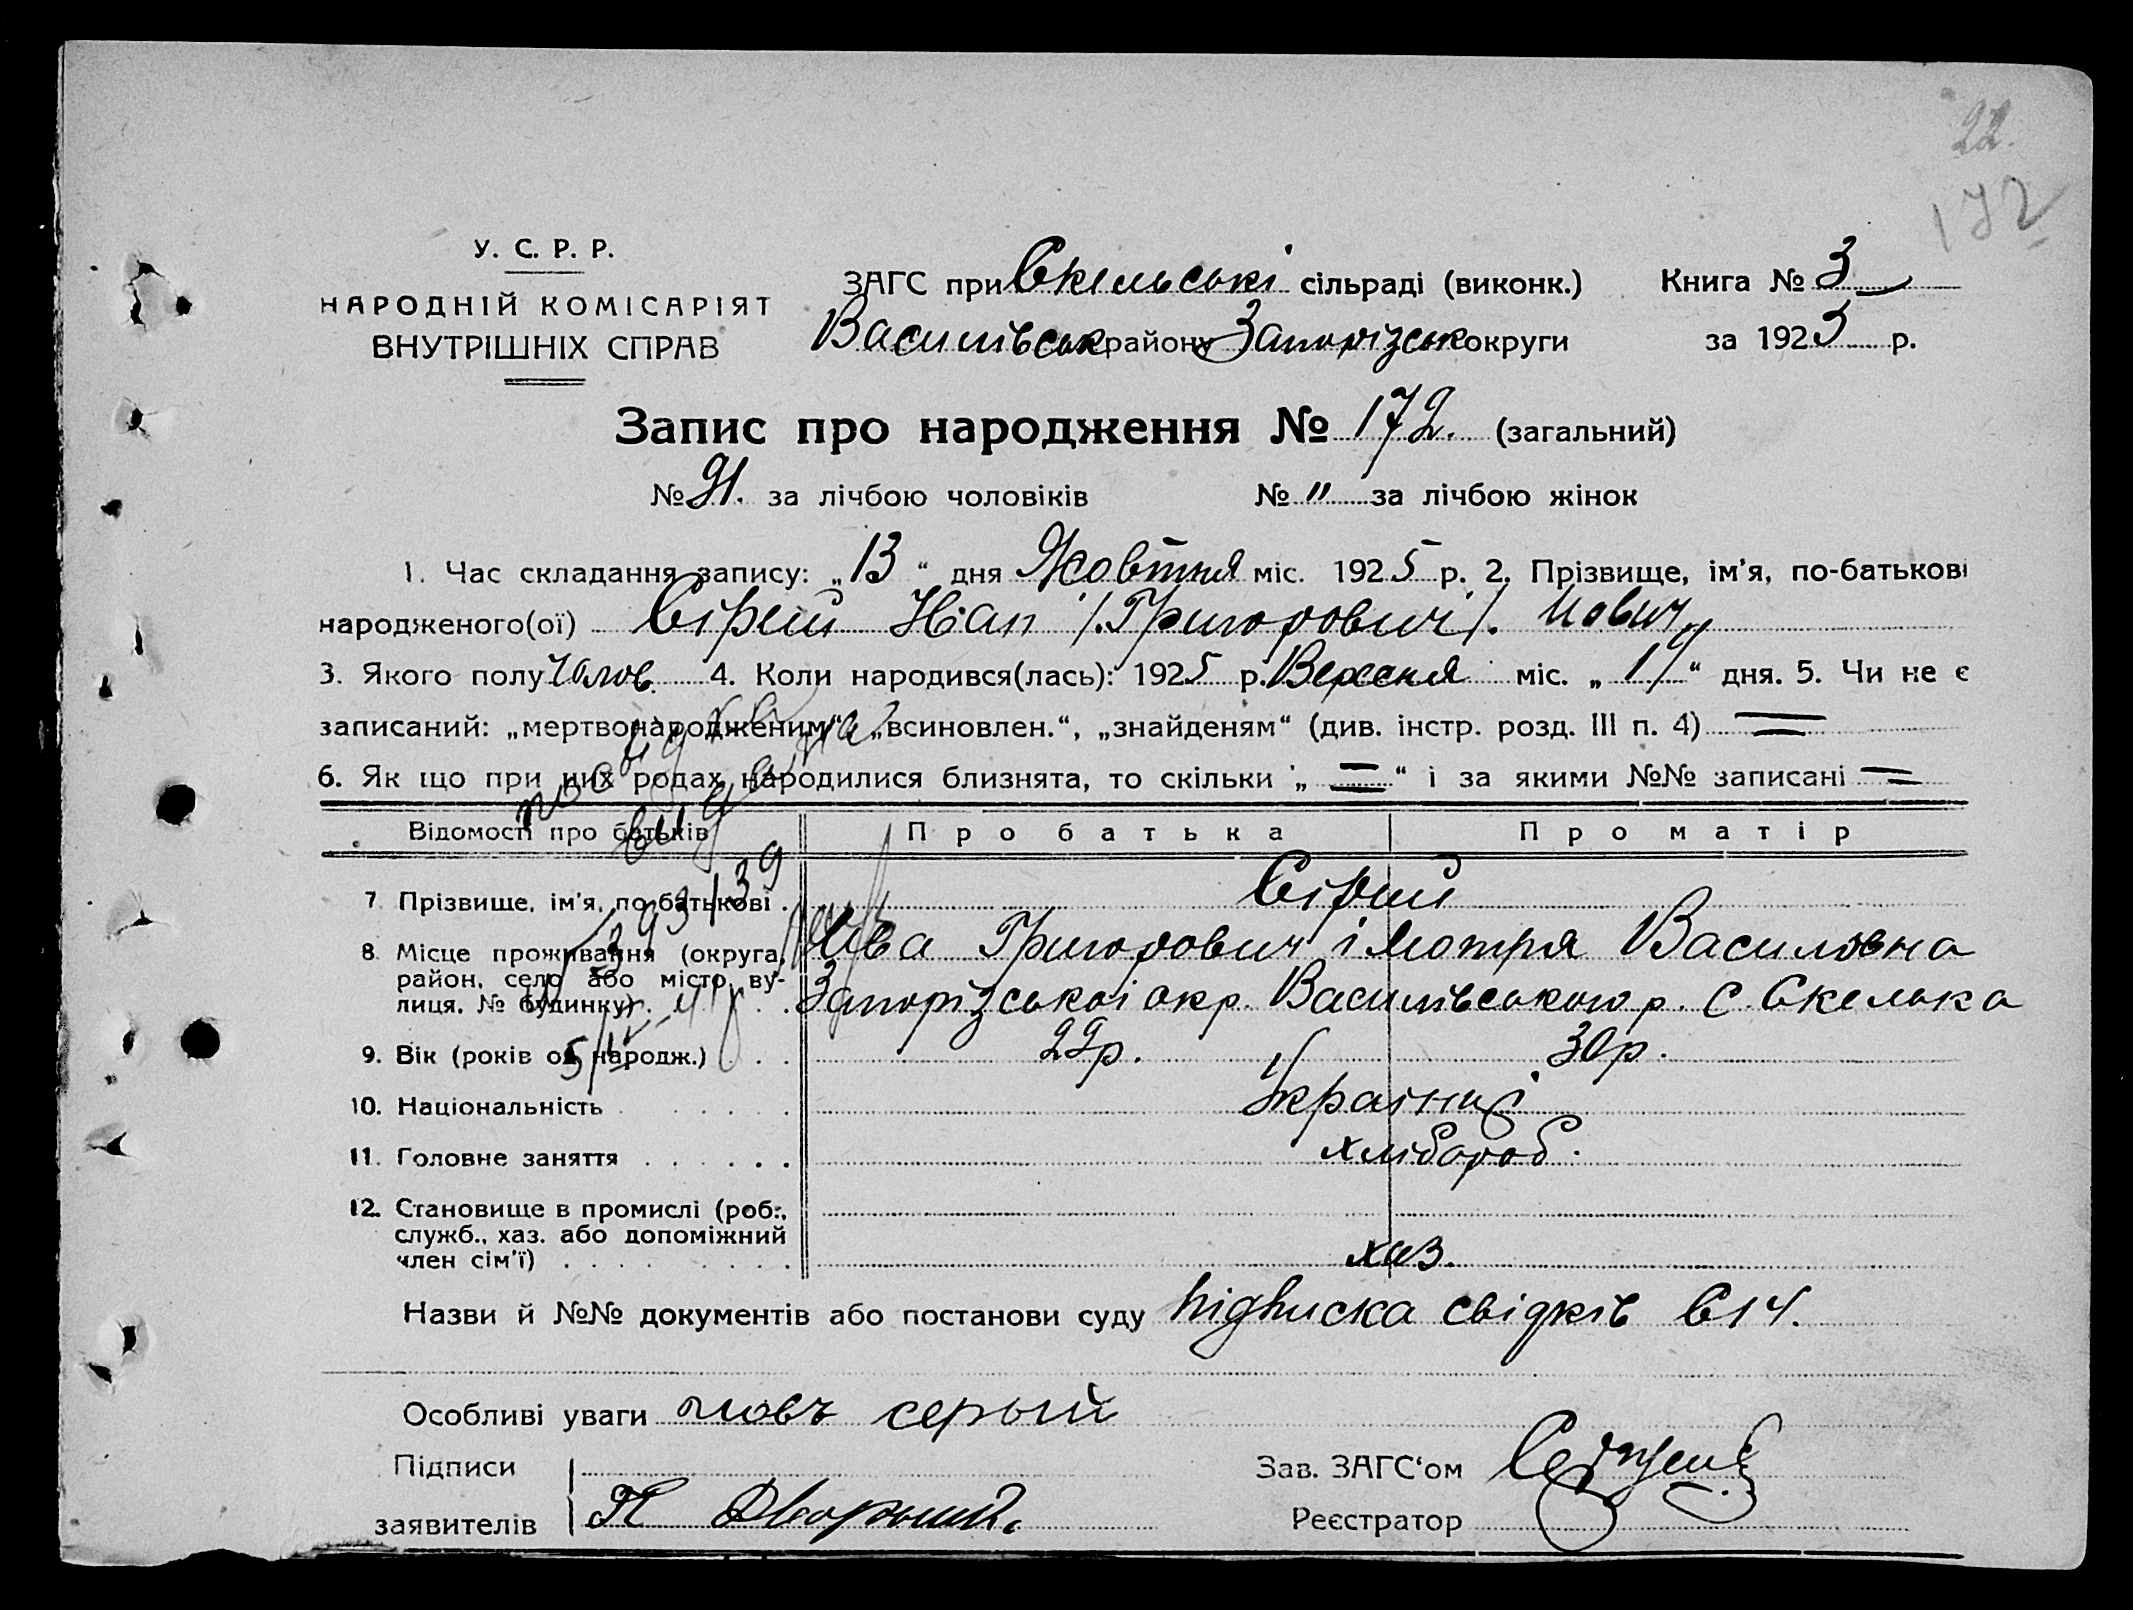 22.
172
У. С. Р. Р.
НАРОДНІЙ КОМІСАРІЯТ
ВНУТРІШНІХ СПРАВ
ЗАГС при Скельські сільраді (виконк.)
Василівськ району Запорізськ округи
Книга № 3
за 1925 р.
Запис про народження № 172. (загальний)
№ 91. за лічбою чоловіків № " за лічбою жінок
1. Час складання запису: „13“ дня Жовтня міс. 1925 р. 2. Прізвище, ім'я, по-батькові
народженого(ої) Сірий /.Григорович/.
3. Якого полу Чолов. 4. Коли народився(лась): 1925 р. Вересня міс. „19“ дня. 5. Чи не є
записаний: „мертвонародженим“, „всиновлен.“, „знайденям“ (див. інстр. розд. III п. 4) =
6. Як що при цих родах народилися близнята, то скільки „ = “ і за якими №№ записані =
Відомості про батьків Про батька Про матір
7 Прізвище, ім'я, по-батькові . Сірий
Іова Григорович і Мотря Василовна
8. Місце проживання (округа, район, село або місто, ву-лиця, № будинку) . . . Запорізської окр. Василівського р. с. Скелька
9. Вік (років од народж.) . . . 29р. 30р.
10. Національність . . . . . Українці
11. Головне заняття . . . . . . хлібороб.
12. Становище в промислі (роб., служб., хаз. або допоміжний член сім'ї) . . . . . . . . хаз.
Назви й №№ документів або постанови суду підписка свідків
Особливі уваги серый
Підписи
заявителів П Дворный.
Зав. ЗАГС‘ом
Реєстратор